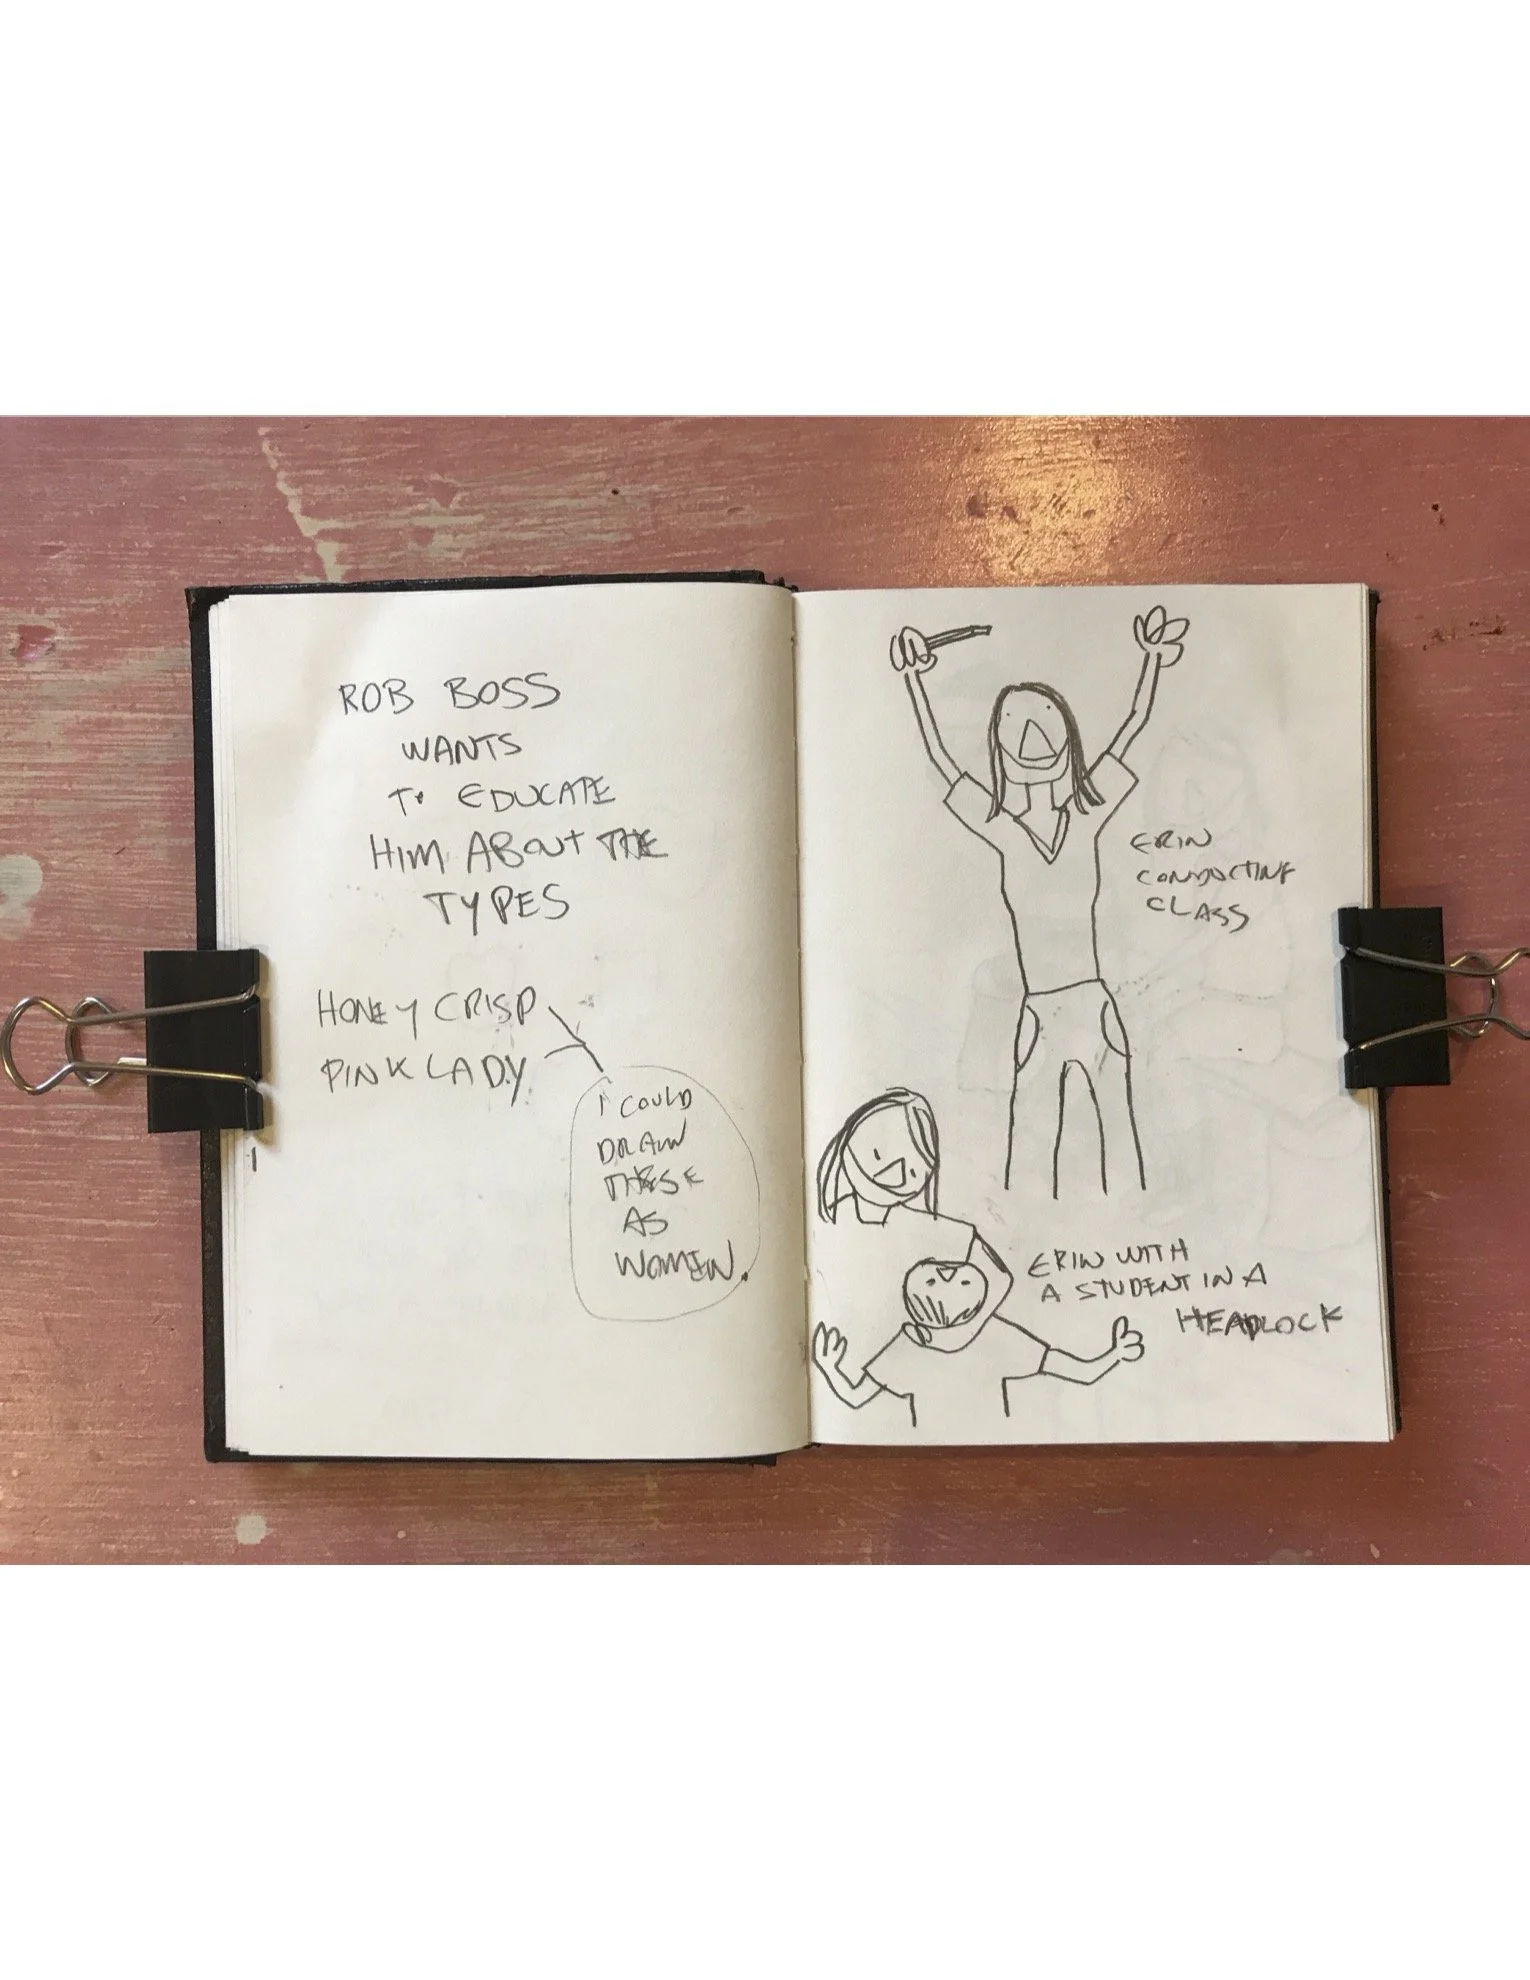 ROB BOSS
WANTS
TO EDUCATE
HIM ABOUT THE
TYPES
HONEY CRISP
PINK LADY
I COULD
DRAW
THESE
AS
WOMEN.
ERIN
CONDUCTING
CLASS
ERIN WITH
A STUDENT IN A
HEADLOCK